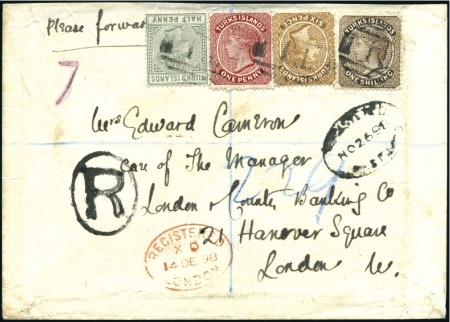 Please forward
TURKS ISLANDS
HALF PENNY
TURKS ISLANDS
ONE PENNY
TURKS ISLANDS
SIX PENCE
TURKS ISLANDS
ONE SHILLING
7
Mrs Edward Cameron
care of The Manager
London & County Banking Co
21 Hanover Square
London W.
R
REGISTERED
14 DE 98
LONDON
NO 26 98